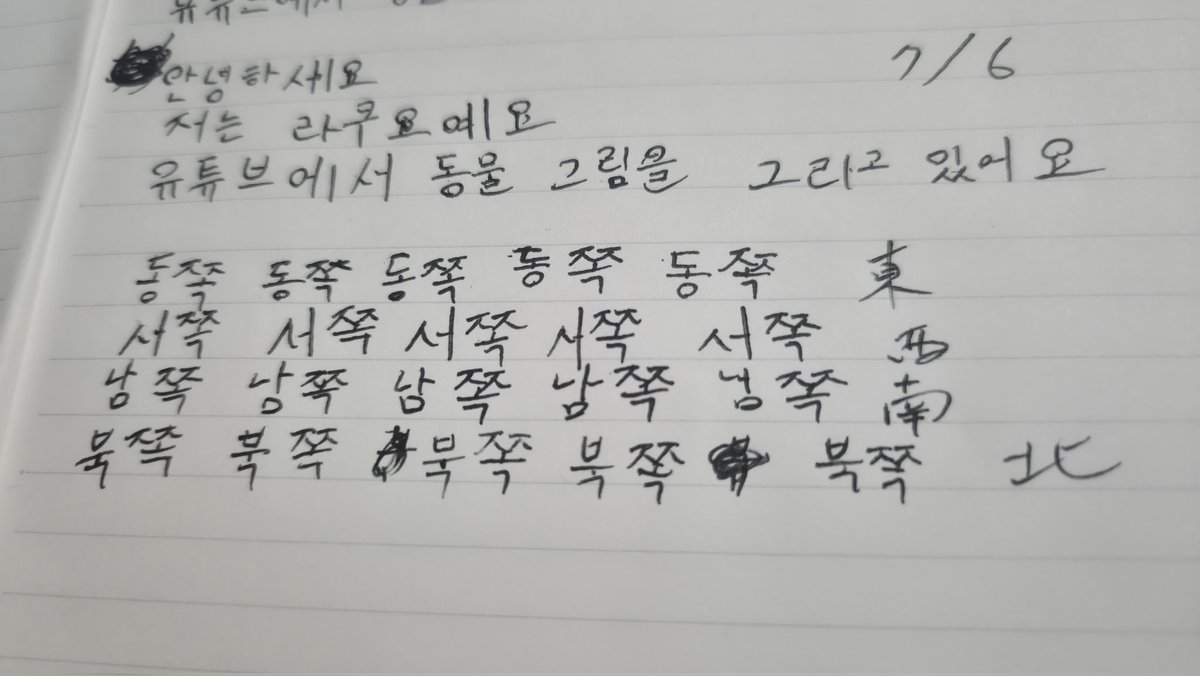 유튜브에서
안녕하세요 7/6
저는 라쿠요예요
유튜브에서 동물 그림을 그리고 있어요
동쪽 동쪽 동쪽 동쪽 동쪽 東
서쪽 서쪽 서쪽 서쪽 서쪽 西
남쪽 남쪽 남쪽 남쪽 넘쪽 南
북쪽 북쪽 북쪽 북쪽 북쪽 北